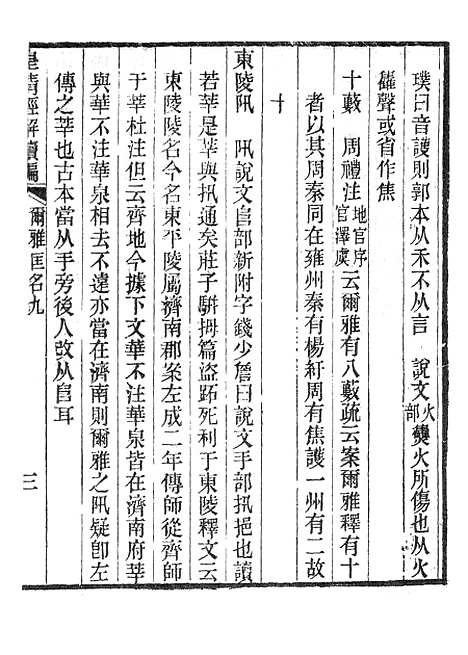 璞曰音護則郭本从禾不从言　說文火部㸈火所傷也从火
雥聲或省作焦
十藪　周禮注地官序官澤虞云爾雅有八藪疏云案爾雅釋有十
者以其周秦同在雍州秦有楊紆周有焦護一州有二故
十
東陵阠　阠說文𨸏部新附字錢少詹曰說文手部扟挹也讀
若莘是莘與扟通矣莊子駢拇篇盜跖死利于東陵釋文云
東陵陵名今名東平陵屬濟南郡案左成二年傳師從齊師
于莘杜注但云齊地今據下文華不注華泉皆在濟南府莘
與華不注華泉相去不遠亦當在濟南則爾雅之阠疑卽左
傳之莘也古本當从手旁後人改从𨸏耳
皇清經解續編
爾雅匡名九
三